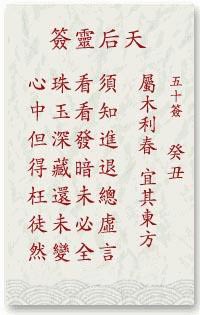 天后靈簽
五十簽　癸丑
屬木利春　宜其東方
須知進退總虛言
看看發暗未必全
珠玉深藏還未變
心中但得枉徒然